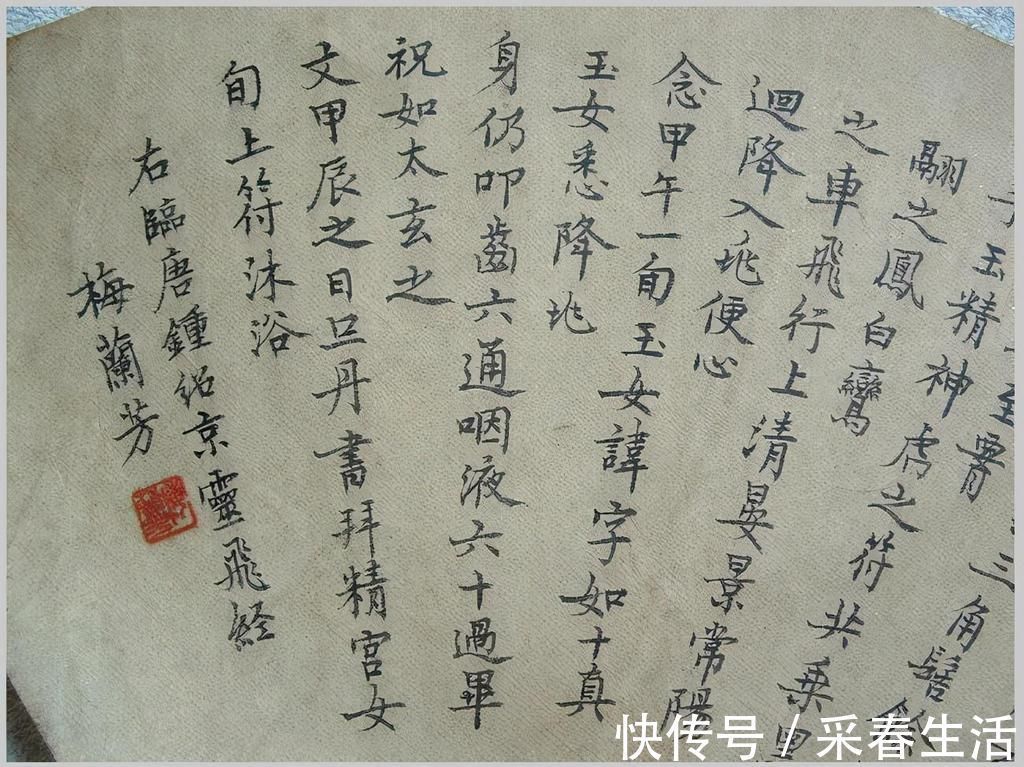 玉精
三角髻
神虎之符共乘
翮之鳳白鸞
之車飛行上清晏景常陽
迴降入兆便心
念甲午一旬玉女諱字如十真
玉女悉降兆
身仍叩齒六通咽液六十過畢
祝如太玄之
文甲辰之日旦丹書拜精宮女
旬上符沐浴
右臨唐鍾紹京靈飛經
梅蘭芳
快传号 / 采春生活